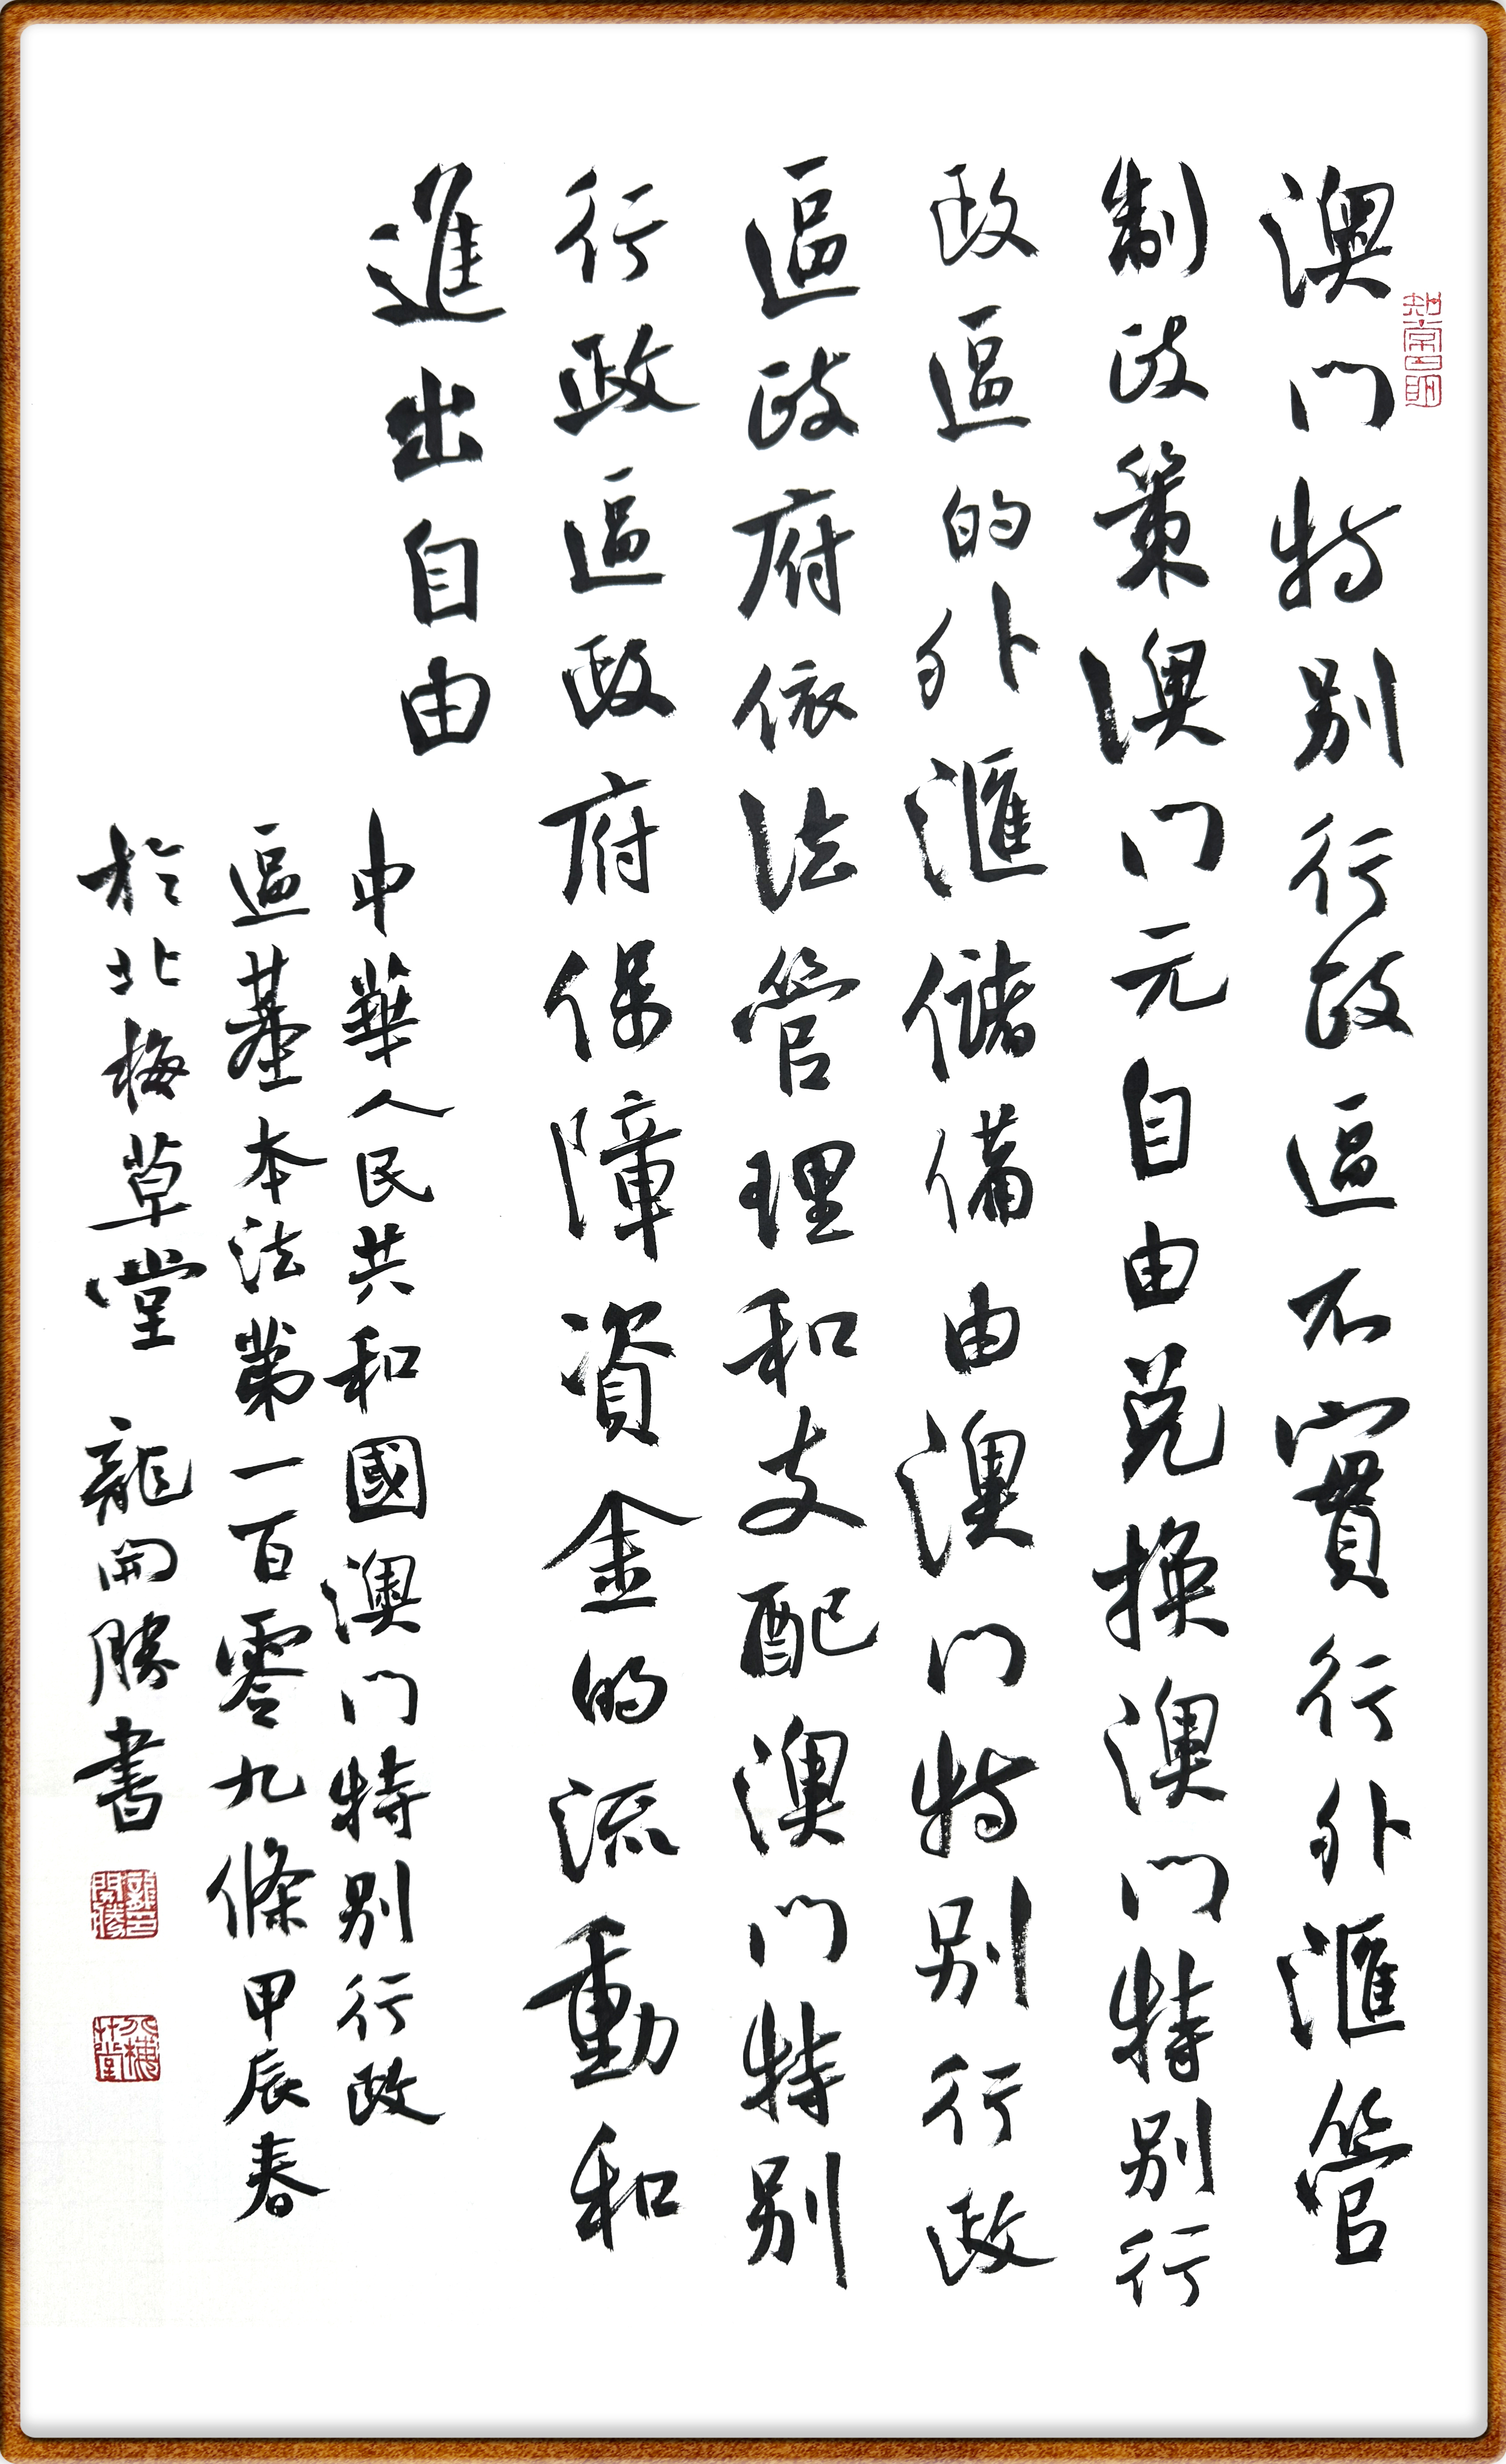 澳门特别行政區不實行外滙管
制政策澳门元自由兑换澳门特别行
政區的外滙儲備由澳门特别行政
區政府依法管理和支配澳门特别
行政區政府保障資金的流動和
進出自由
中華人民共和國澳门特别行政
區基本法第一百零九條甲辰春
於北梅草堂 龍開勝書
知常曰明